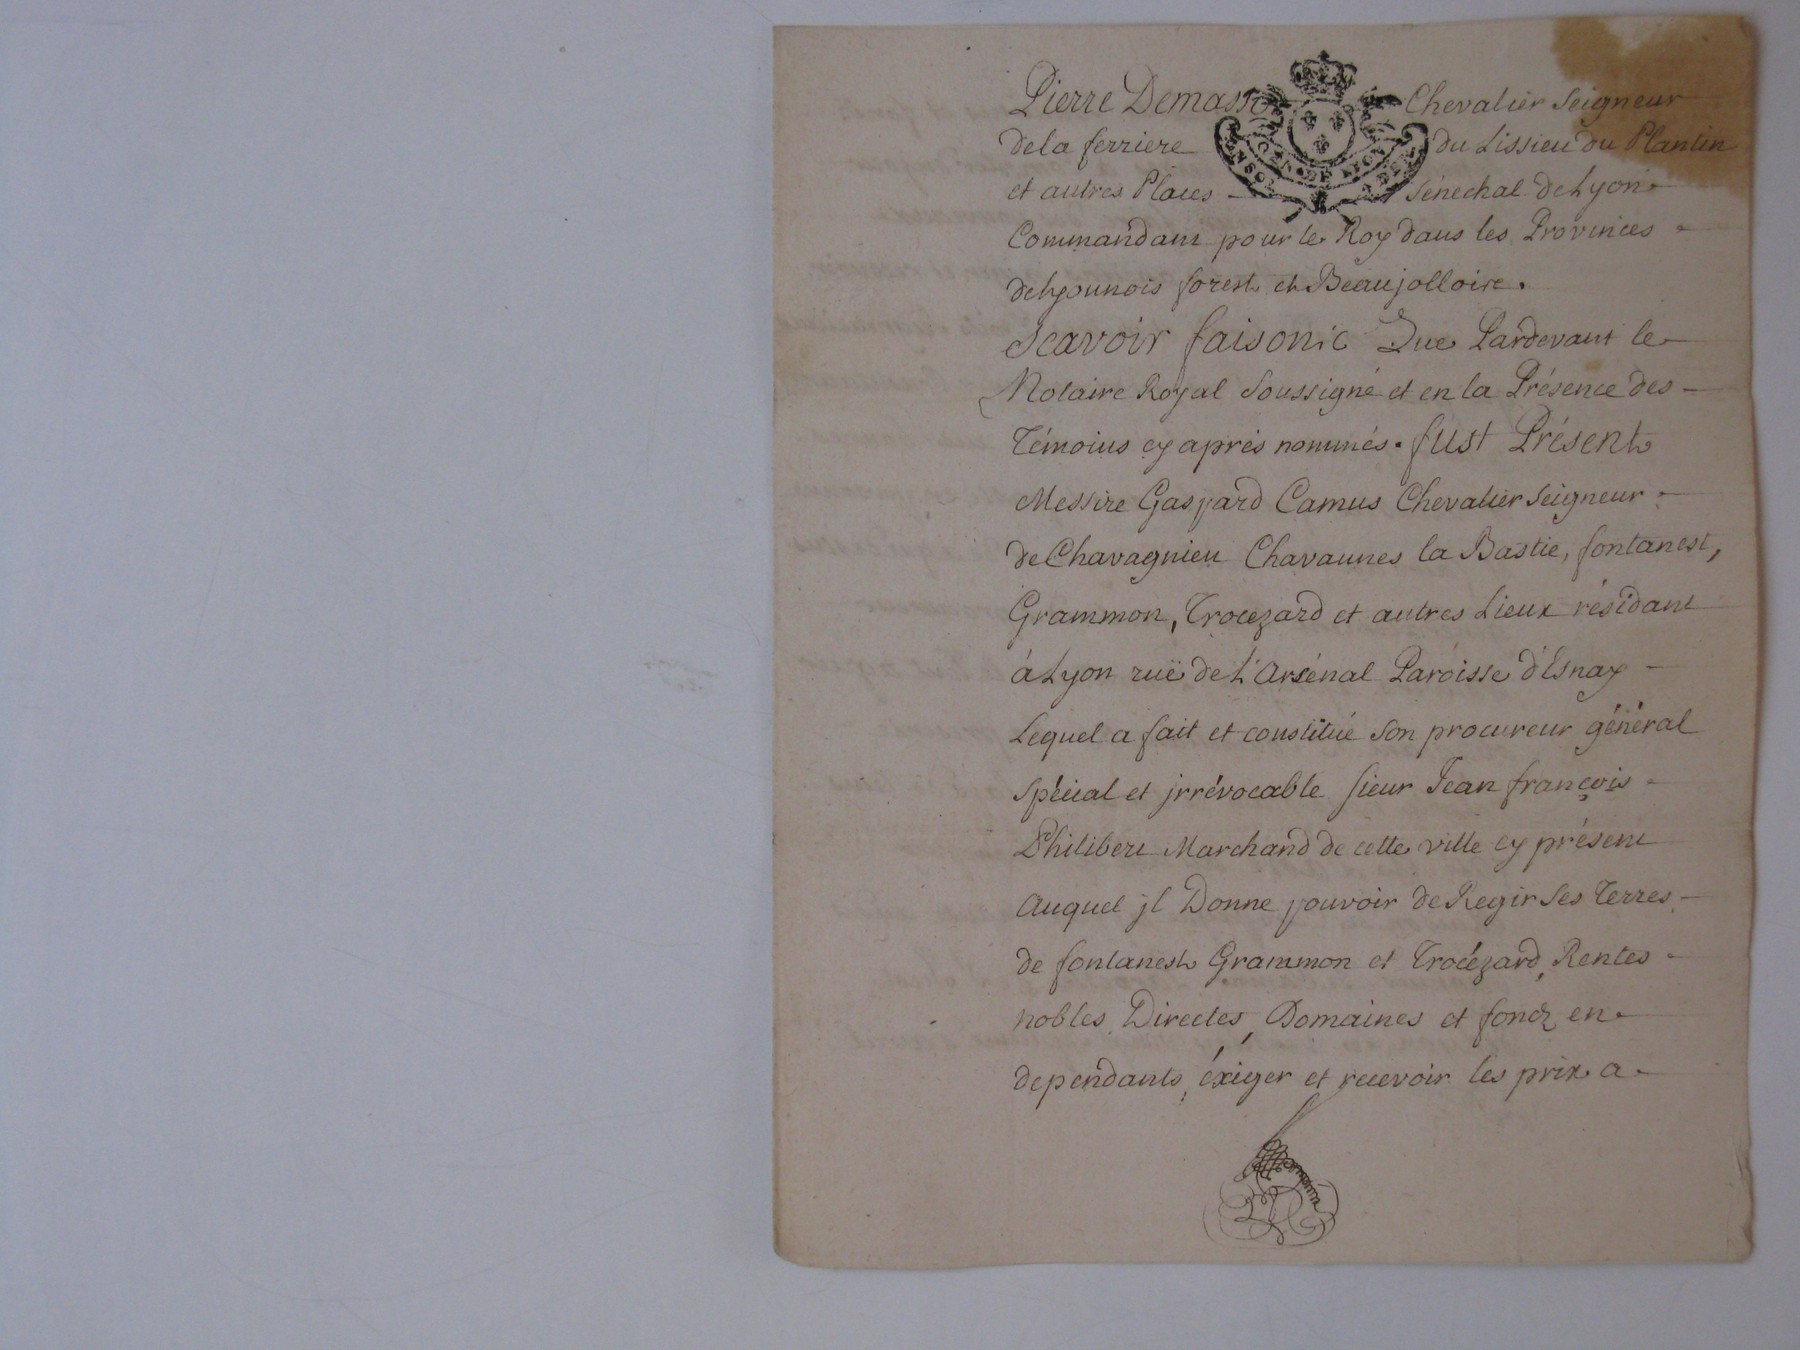 Pierre Demasso Chevalier Seigneur
de la ferriere du Lissieu du Plantin
et autres Places Sénechal de Lyon
Commandant pour le Roy dans les Provinces
de Lyonnois forest et Beaujolloire.
Scavoir faisons Que Pardevant le
Notaire Royal Soussigné et en la Présence des
Témoins cy après nommés. fust Présent
Messire Gaspard Camus Chevalier Seigneur
de Chavagnieu Chavannes la Bastie, fontanest,
Grammon, Trocezard et autres Lieux résidant
à Lyon ruë de L'Arsénal Paroisse d'Esnay
Lequel a fait et constitué Son procureur général
Spécial et jrrévocable Sieur Jean françois
Philibert Marchand de cette ville cy présent
Auquel jl Donne pouvoir de Regir Ses Terres
de fontanest Grammon et Trocézard, Rentes
nobles, Directes, Domaines et fondz en
dependants, éxiger et recevoir les prix a